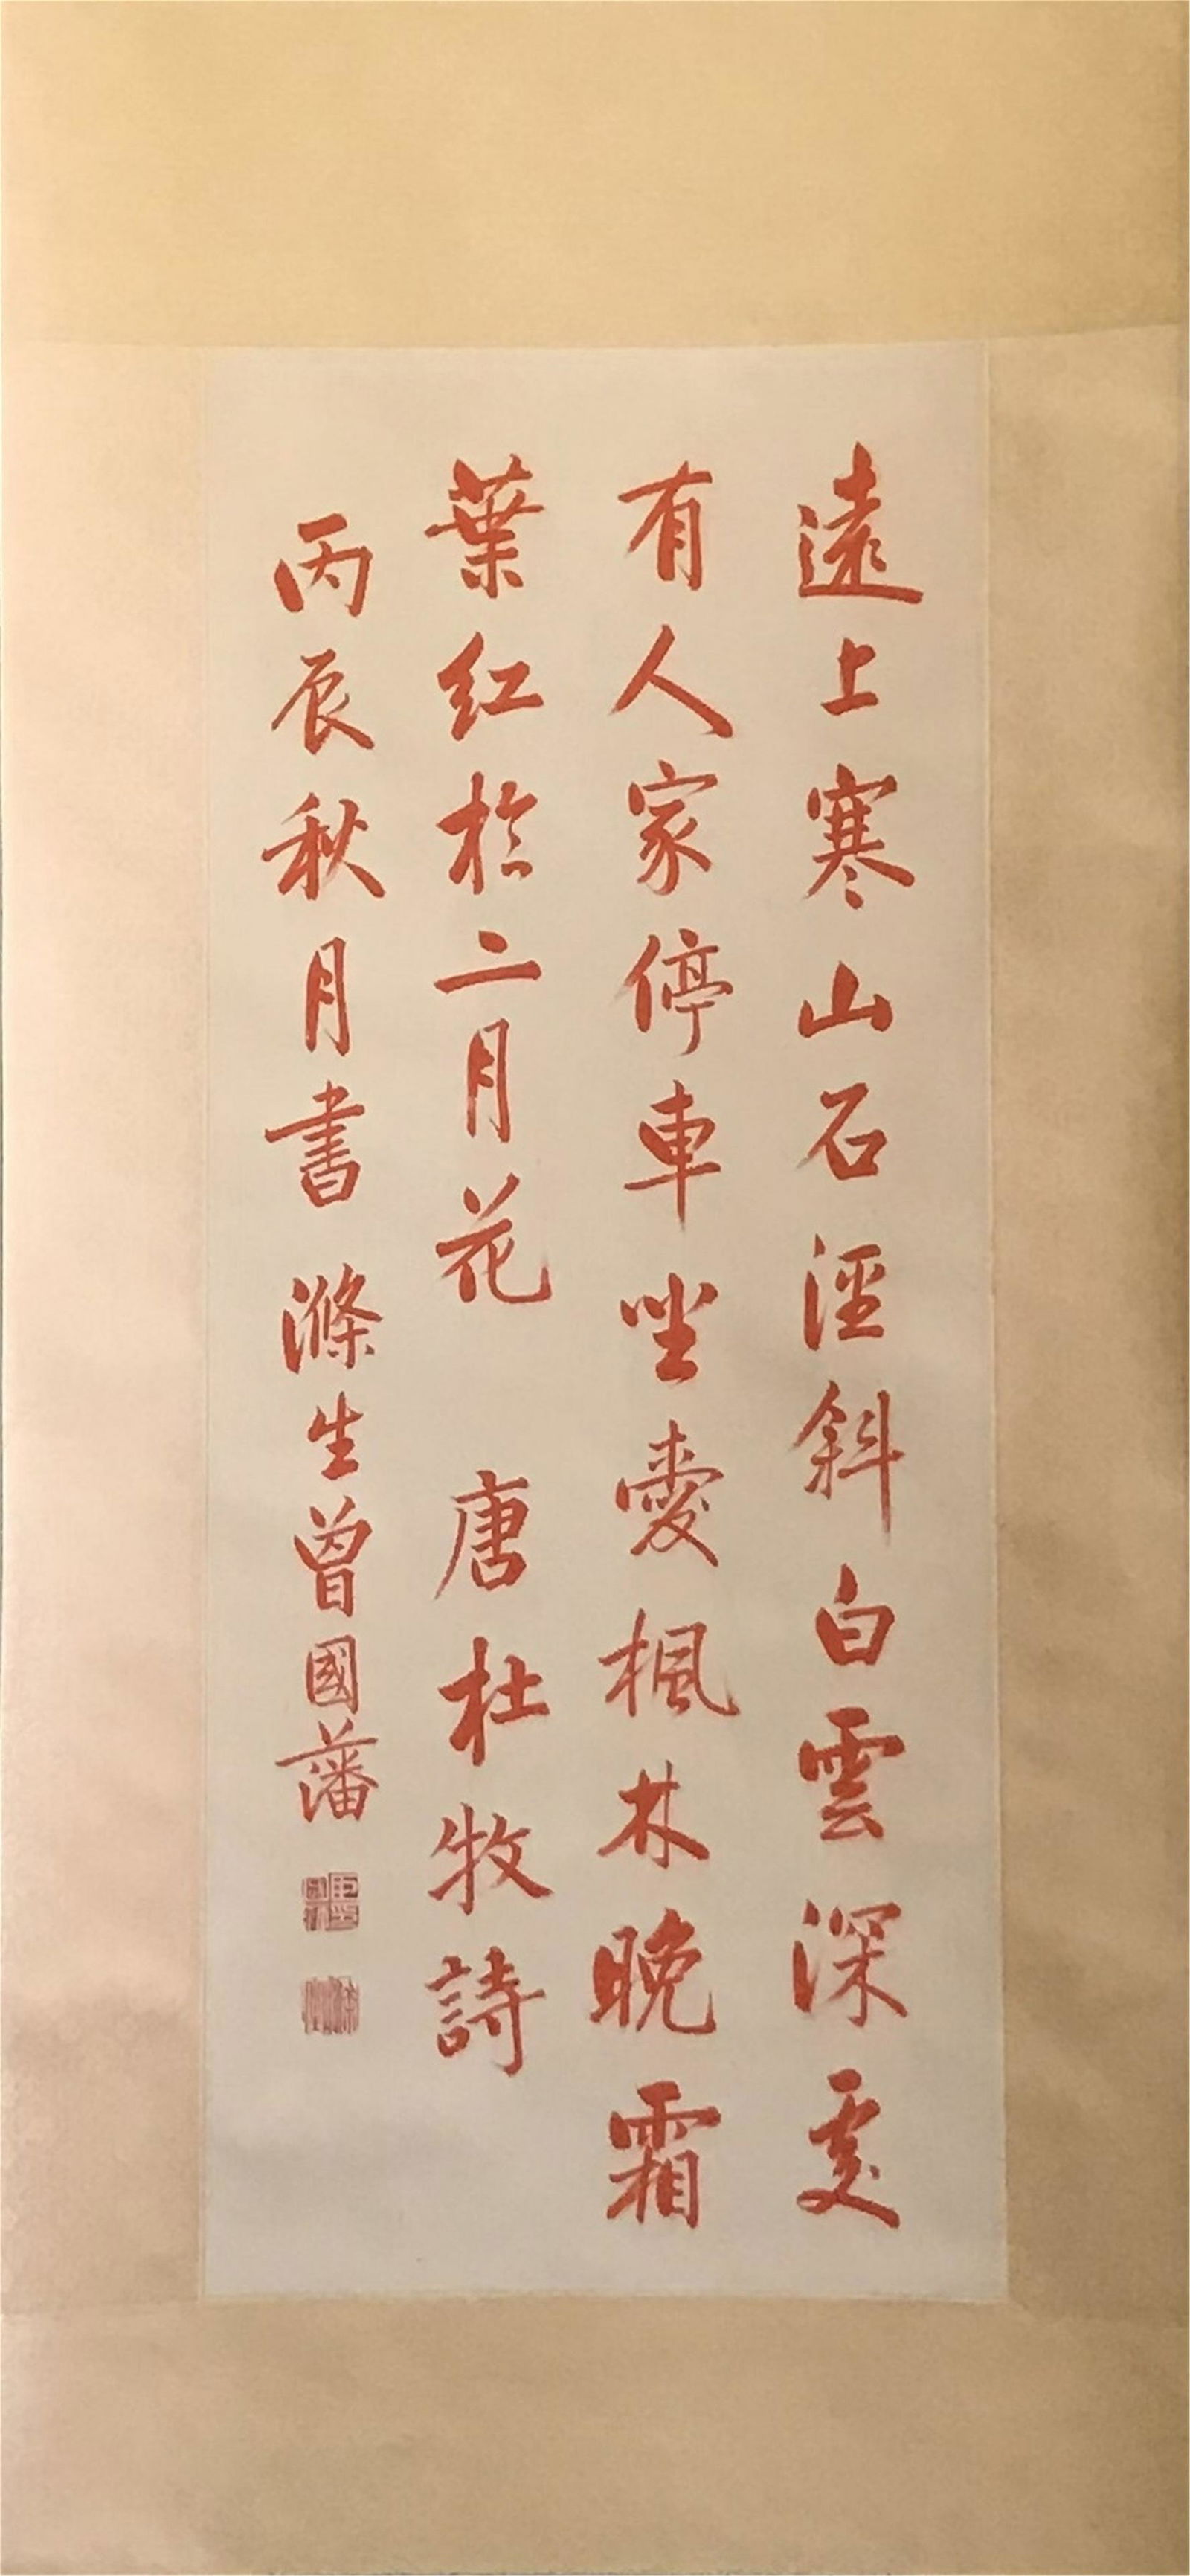 遠上寒山石涇斜白雲深處
有人家停車坐愛楓林晚霜
葉紅於二月花 唐杜牧詩
丙辰秋月書 滌生曾國藩